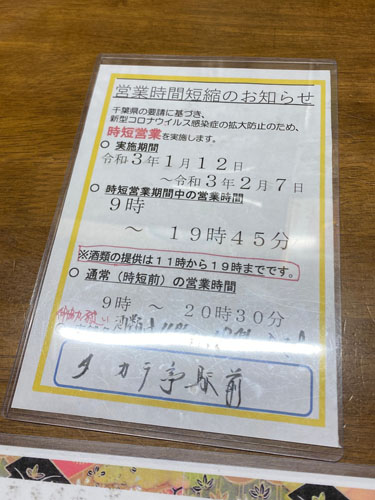 営業時間短縮のお知らせ
千葉県の要請に基づき、
新型コロナウイルス感染症の拡大防止のため、
時短営業を実施します。
○ 実施期間
令和3年1月12日
～令和3年2月7日
○ 時短営業期間中の営業時間
9時
～ 19時45分
※酒類の提供は11時から19時までです。
○ 通常（時短前）の営業時間
9時 ～ 20時30分
タカラ亭駅前